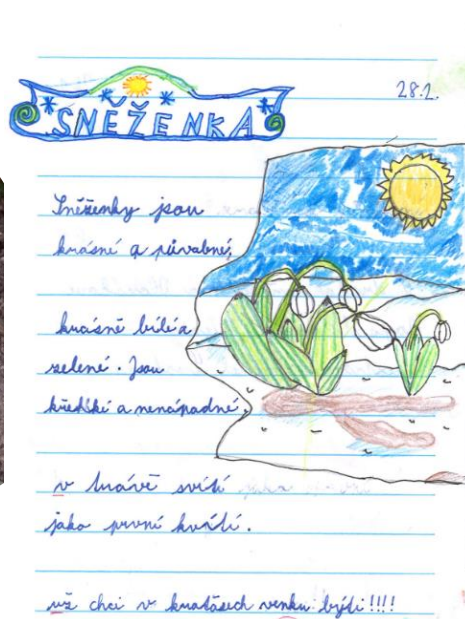 28.2.
SNĚŽENKA
Sněženky jsou
krásné a půvabné,
krásně bílé a
zelené. Jsou
křehké a nenápadné.
v trávě svítí
jako první kvítí.
už chci v kraťasech venku býti!!!!